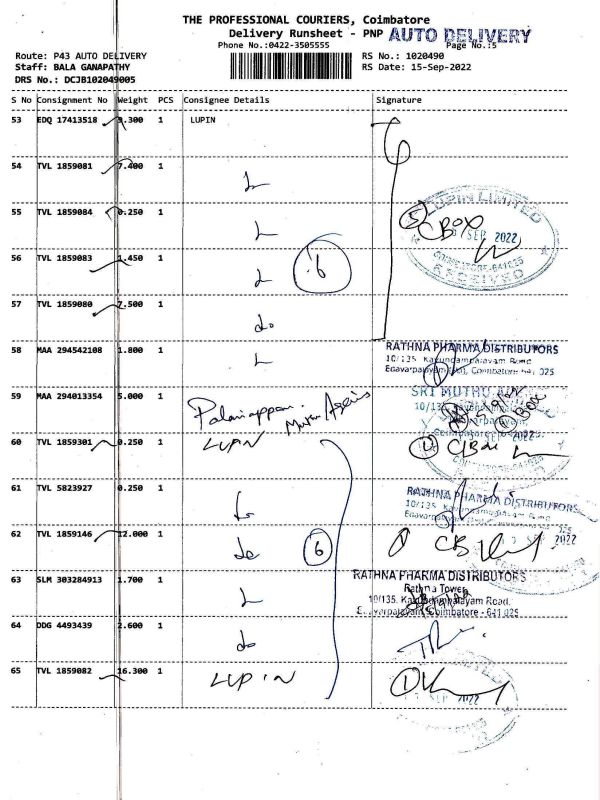 THE PROFESSIONAL COURIERS, Coimbatore
Delivery Runsheet - PNP AUTO DELIVERY
Phone No.:0422-3505555 Page No.:5
Route: P43 AUTO DELIVERY RS No.: 1020490
Staff: BALA GANAPATHY RS Date: 15-Sep-2022
DRS No.: DCJB102049005
S No Consignment No Weight PCS Consignee Details Signature
53 EDQ 17413518 .300 1 LUPIN
54 TVL 1859081 7.400 1
LUPIN LIMITED
55 TVL 1859084 0.250 1 5 C Box
SEP 2022
56 TVL 1859083 1.450 1 6
COIMBATORE-641025
RECEIVED
57 TVL 1859080 7.500 1 do
58 MAA 294542108 1.800 1 RATHNA PHARMA DISTRIBUTORS
10/135 Kavundampalayam Road
Edayarpalayam, Coimbatore 641 025
59 MAA 294013354 5.000 1 Palaniappan SRI MUTHU
10/13
60 TVL 1859301 0.250 1 LUPIN C/Box
2022
COIMBATORE-641025
61 TVL 5823927 0.250 1 RATHNA PHARMA DISTRIBUTORS
62 TVL 1859146 12.000 1 do 6 CB
2022
63 SLM 303284913 1.700 1 RATHNA PHARMA DISTRIBUTORS
Rathna Tower
10/135, Kavundampalayam Road,
Edayarpalayam, Coimbatore - 641 025
64 DDG 4493439 2.600 1 do
65 TVL 1859082 16.300 1 LUPIN 1
SEP 2022